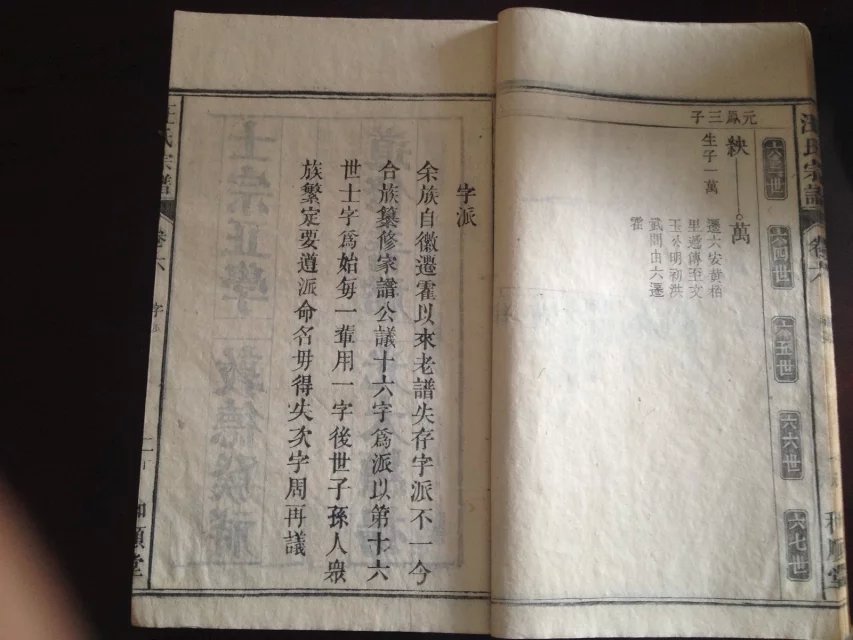 汪氏宗譜
卷六
六三世
六四世
六五世
六六世
六七世
元鳳三子
紻
萬
生子一萬
遷六安黄柏
里遞傳至文
玉公明初洪
武間由六遷
霍
字派
余族自徽遷霍以來老譜失存字派不一今
合族纂修家譜公議十六字爲派以第十六
世士字爲始每一輩用一字後世子孫人衆
族繁定要遵派命名毋得失次字周再議
士宗正學
敦德
氏宗譜
卷六
字
二
和順堂